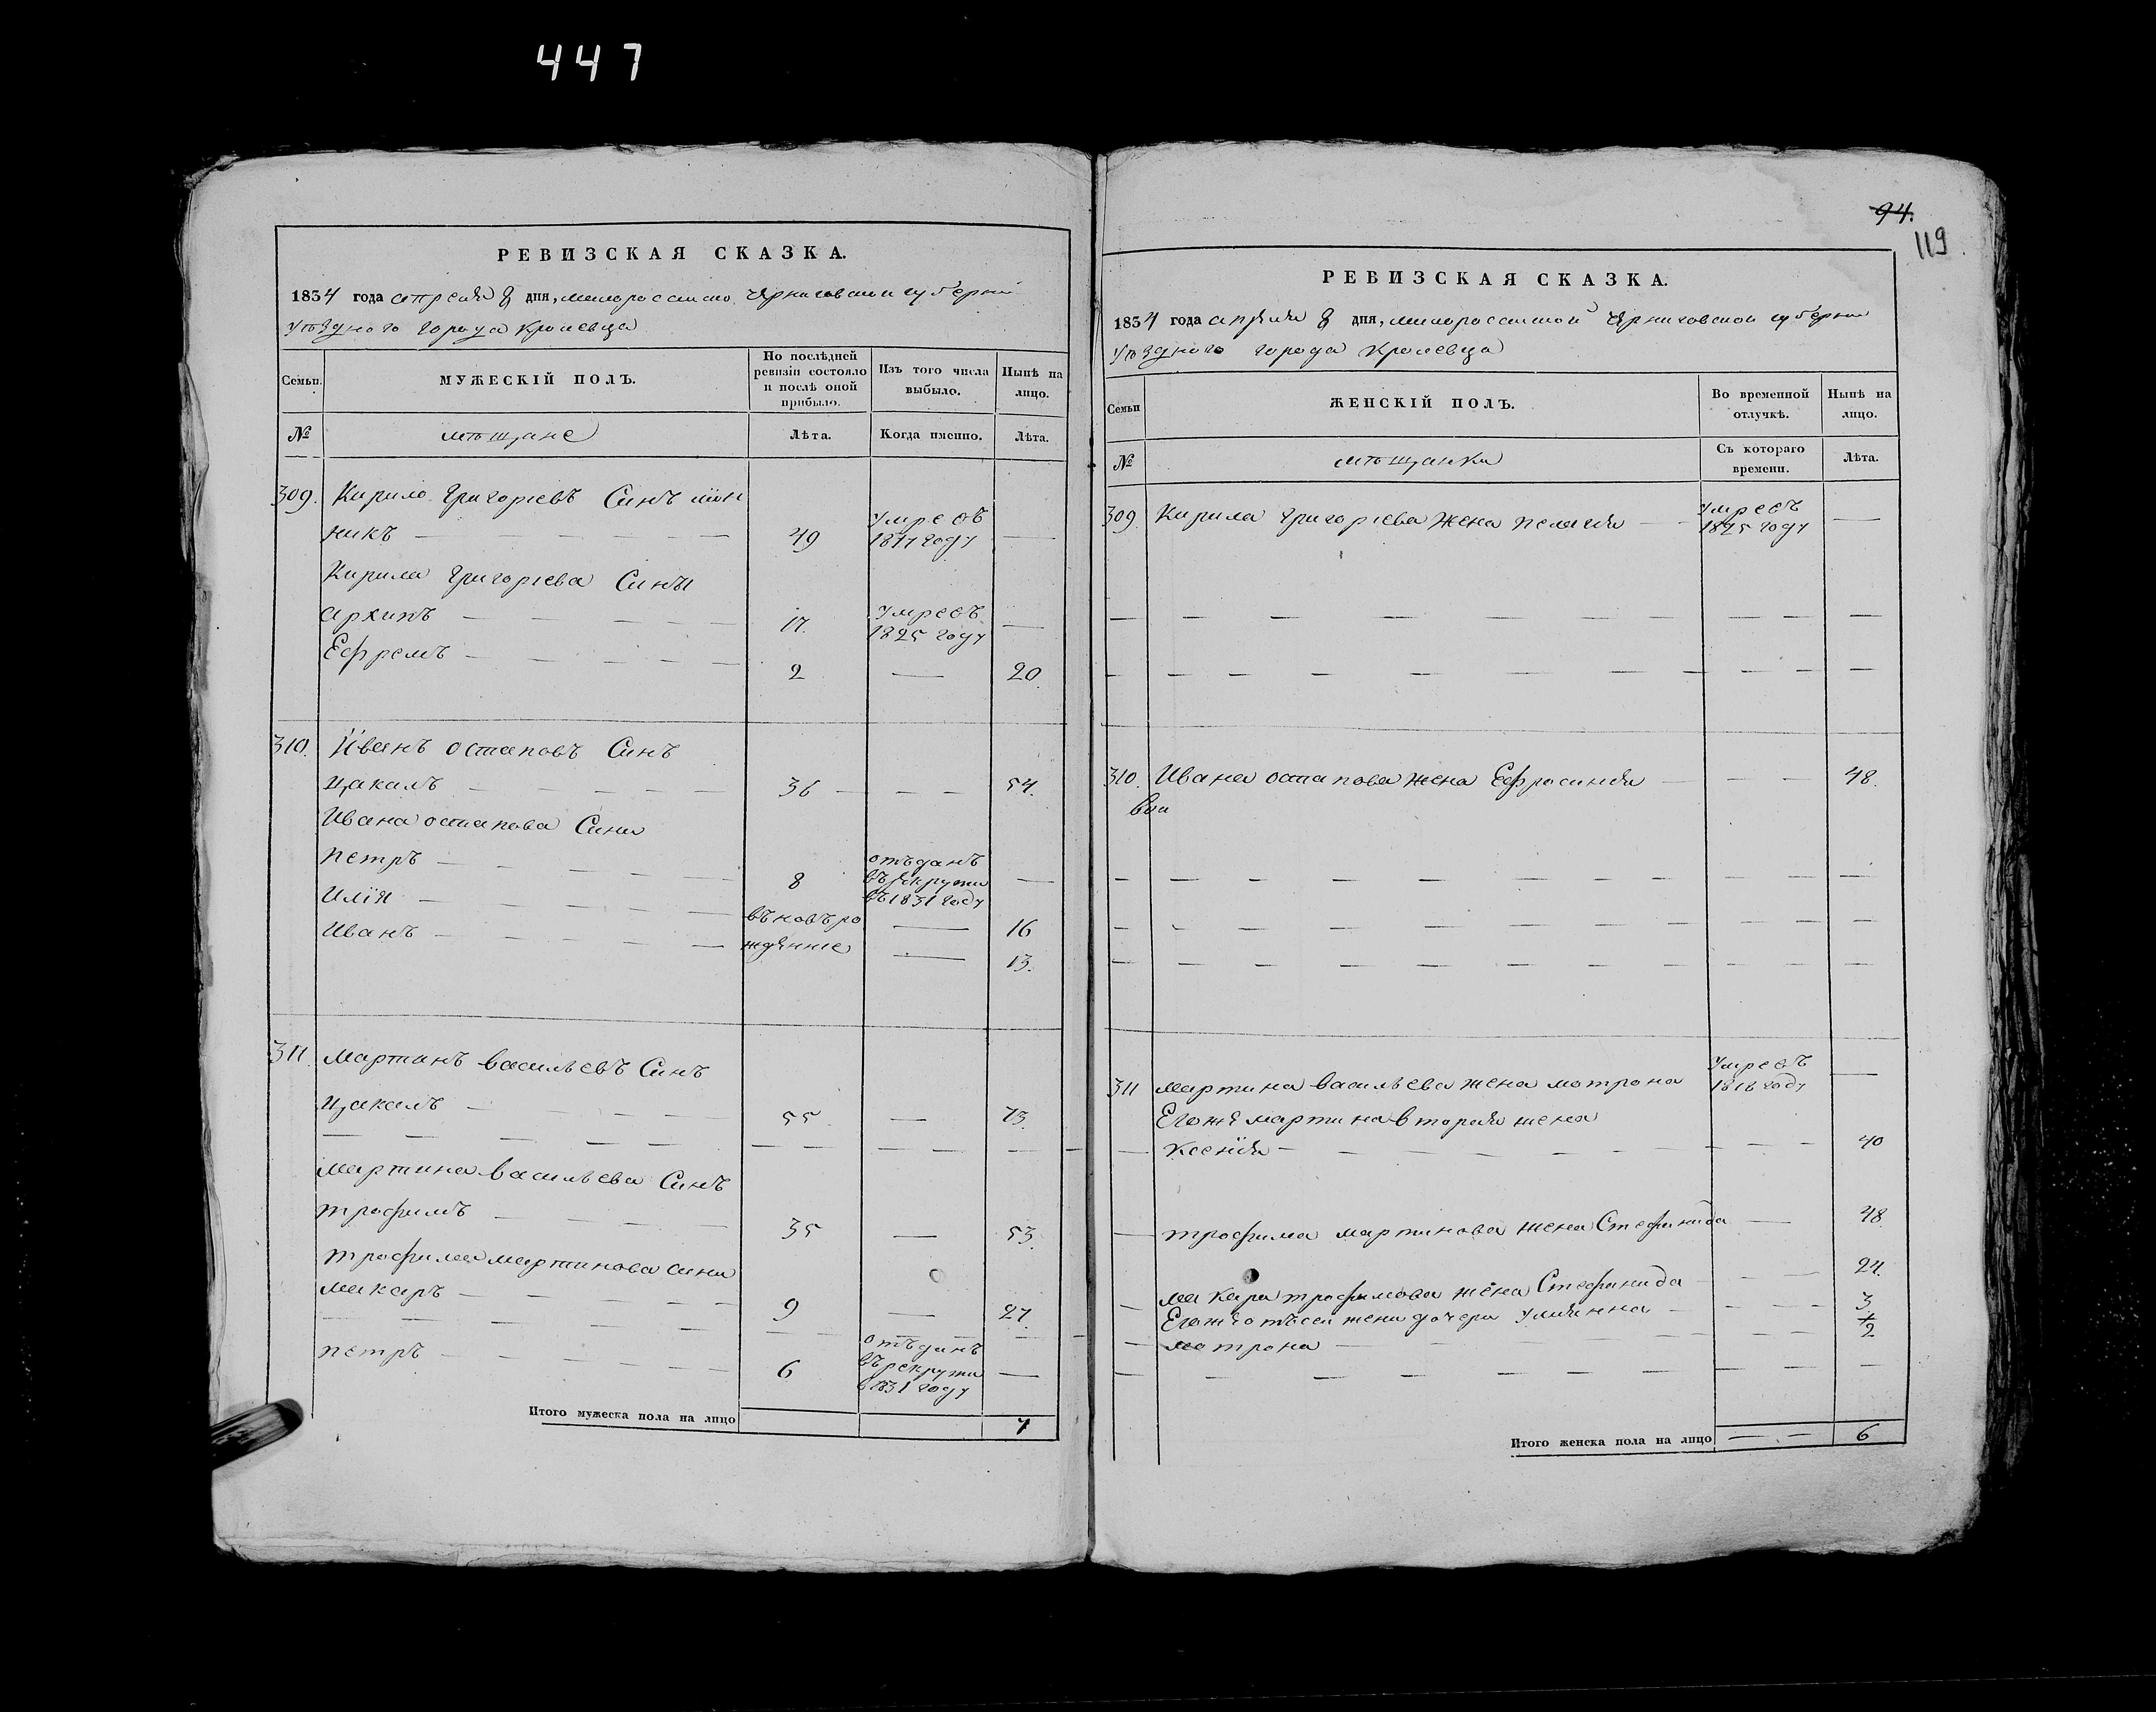 447
РЕВИЗСКАЯ СКАЗКА.
1834 года апреля 8 дня, малоросѣийс Черниговской губернии
уѣздного города Кролевца
Семьи.
МУЖЕСКІЙ ПОЛЪ.
По послѣдней ревизіи состояло и послѣ оной прибыло.
Изъ того числа выбыло.
Нынѣ на лицо.
№
мѣщане
Лѣта.
Когда именно.
Лѣта.
309. Кирило Григоріевъ Синъ
никъ 49 умревъ 1817 году
Кирила Григоріева Сины
архипъ 17. умревъ 1825 году
Ефремъ 2 20.
310. Иванъ остаповъ Синъ
Цакалъ 36 54.
Ивана остапова Сины
петръ 8 отъданъ въ рекруты въ 1831 году
Илія въновъро 16
Иванъ жденніе 13.
311. мартинъ васильевъ Синъ
Цакалъ 55 73.
мартина васильева Синъ
трофимъ 35 53.
трофима мартинова сины
макаръ 9 27.
петръ 6 отъданъ въ рекруты в 1831 году
Итого мужеска пола на лицо 7
94.
119
РЕВИЗСКАЯ СКАЗКА.
1834 года апреля 8 дня, малоросѣийской Черниговской губернии
уѣздного города Кролевца
Семьи
ЖЕНСКІЙ ПОЛЪ.
Во временной отлучкѣ.
Нынѣ на лицо.
№
мѣщанки
Съ котораго времени.
Лѣта.
309. Кирила Григоріева жена пелагія умревъ 1825 году
310. Ивана остапова жена Ефросинія 48.
311 мартина васильева жена мотрона умревъ 1816 году
Егоже мартина вторая жена
Ксенія 40
трофима мартинова жена Стефанида 48.
макара трофимова жена Стефанида 24.
Егоже отъсей жени дочери Улиянна 3
мотрона 1/2
Итого женска пола на лицо 6